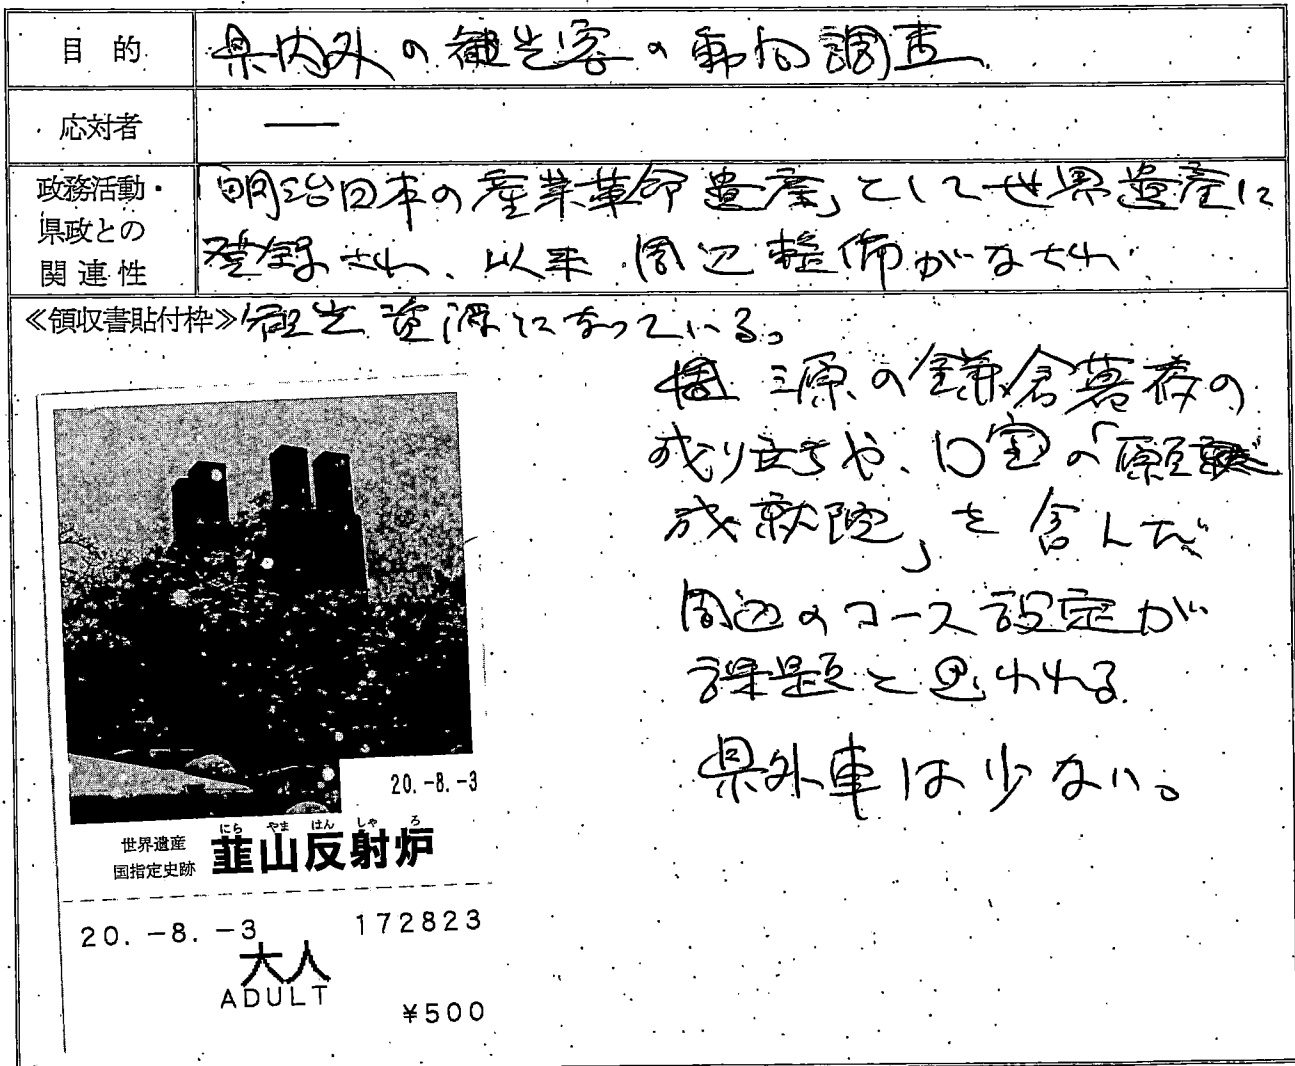 目的 県内外の観光客の動向調査
応対者 ―
政務活動・県政との関連性
「明治日本の産業革命遺産」として世界遺産に
登録され、以来 周辺整備がなされ
≪領収書貼付枠≫ 観光資源になっている。
源の鎌倉幕府の
成り立ちや、国宝の「願
成就院」を含んだ
周辺のコース設定が
課題と思われる
県外車は少ない。
20.-8.-3
にらやまはんしゃろ
世界遺産
国指定史跡 韮山反射炉
20.-8.-3 172823
大人
ADULT
¥500